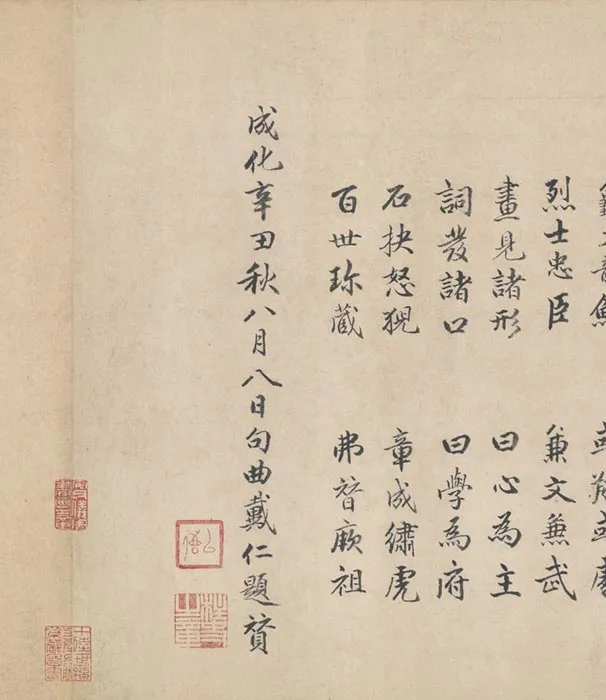 烈士忠臣 兼文兼武
畫見諸形 曰心為主
詞發諸口 曰學為府
石抉怒猊 章成繡虎
百世珎藏 弗替厥祖
成化辛丑秋八月八日句曲戴仁題賛